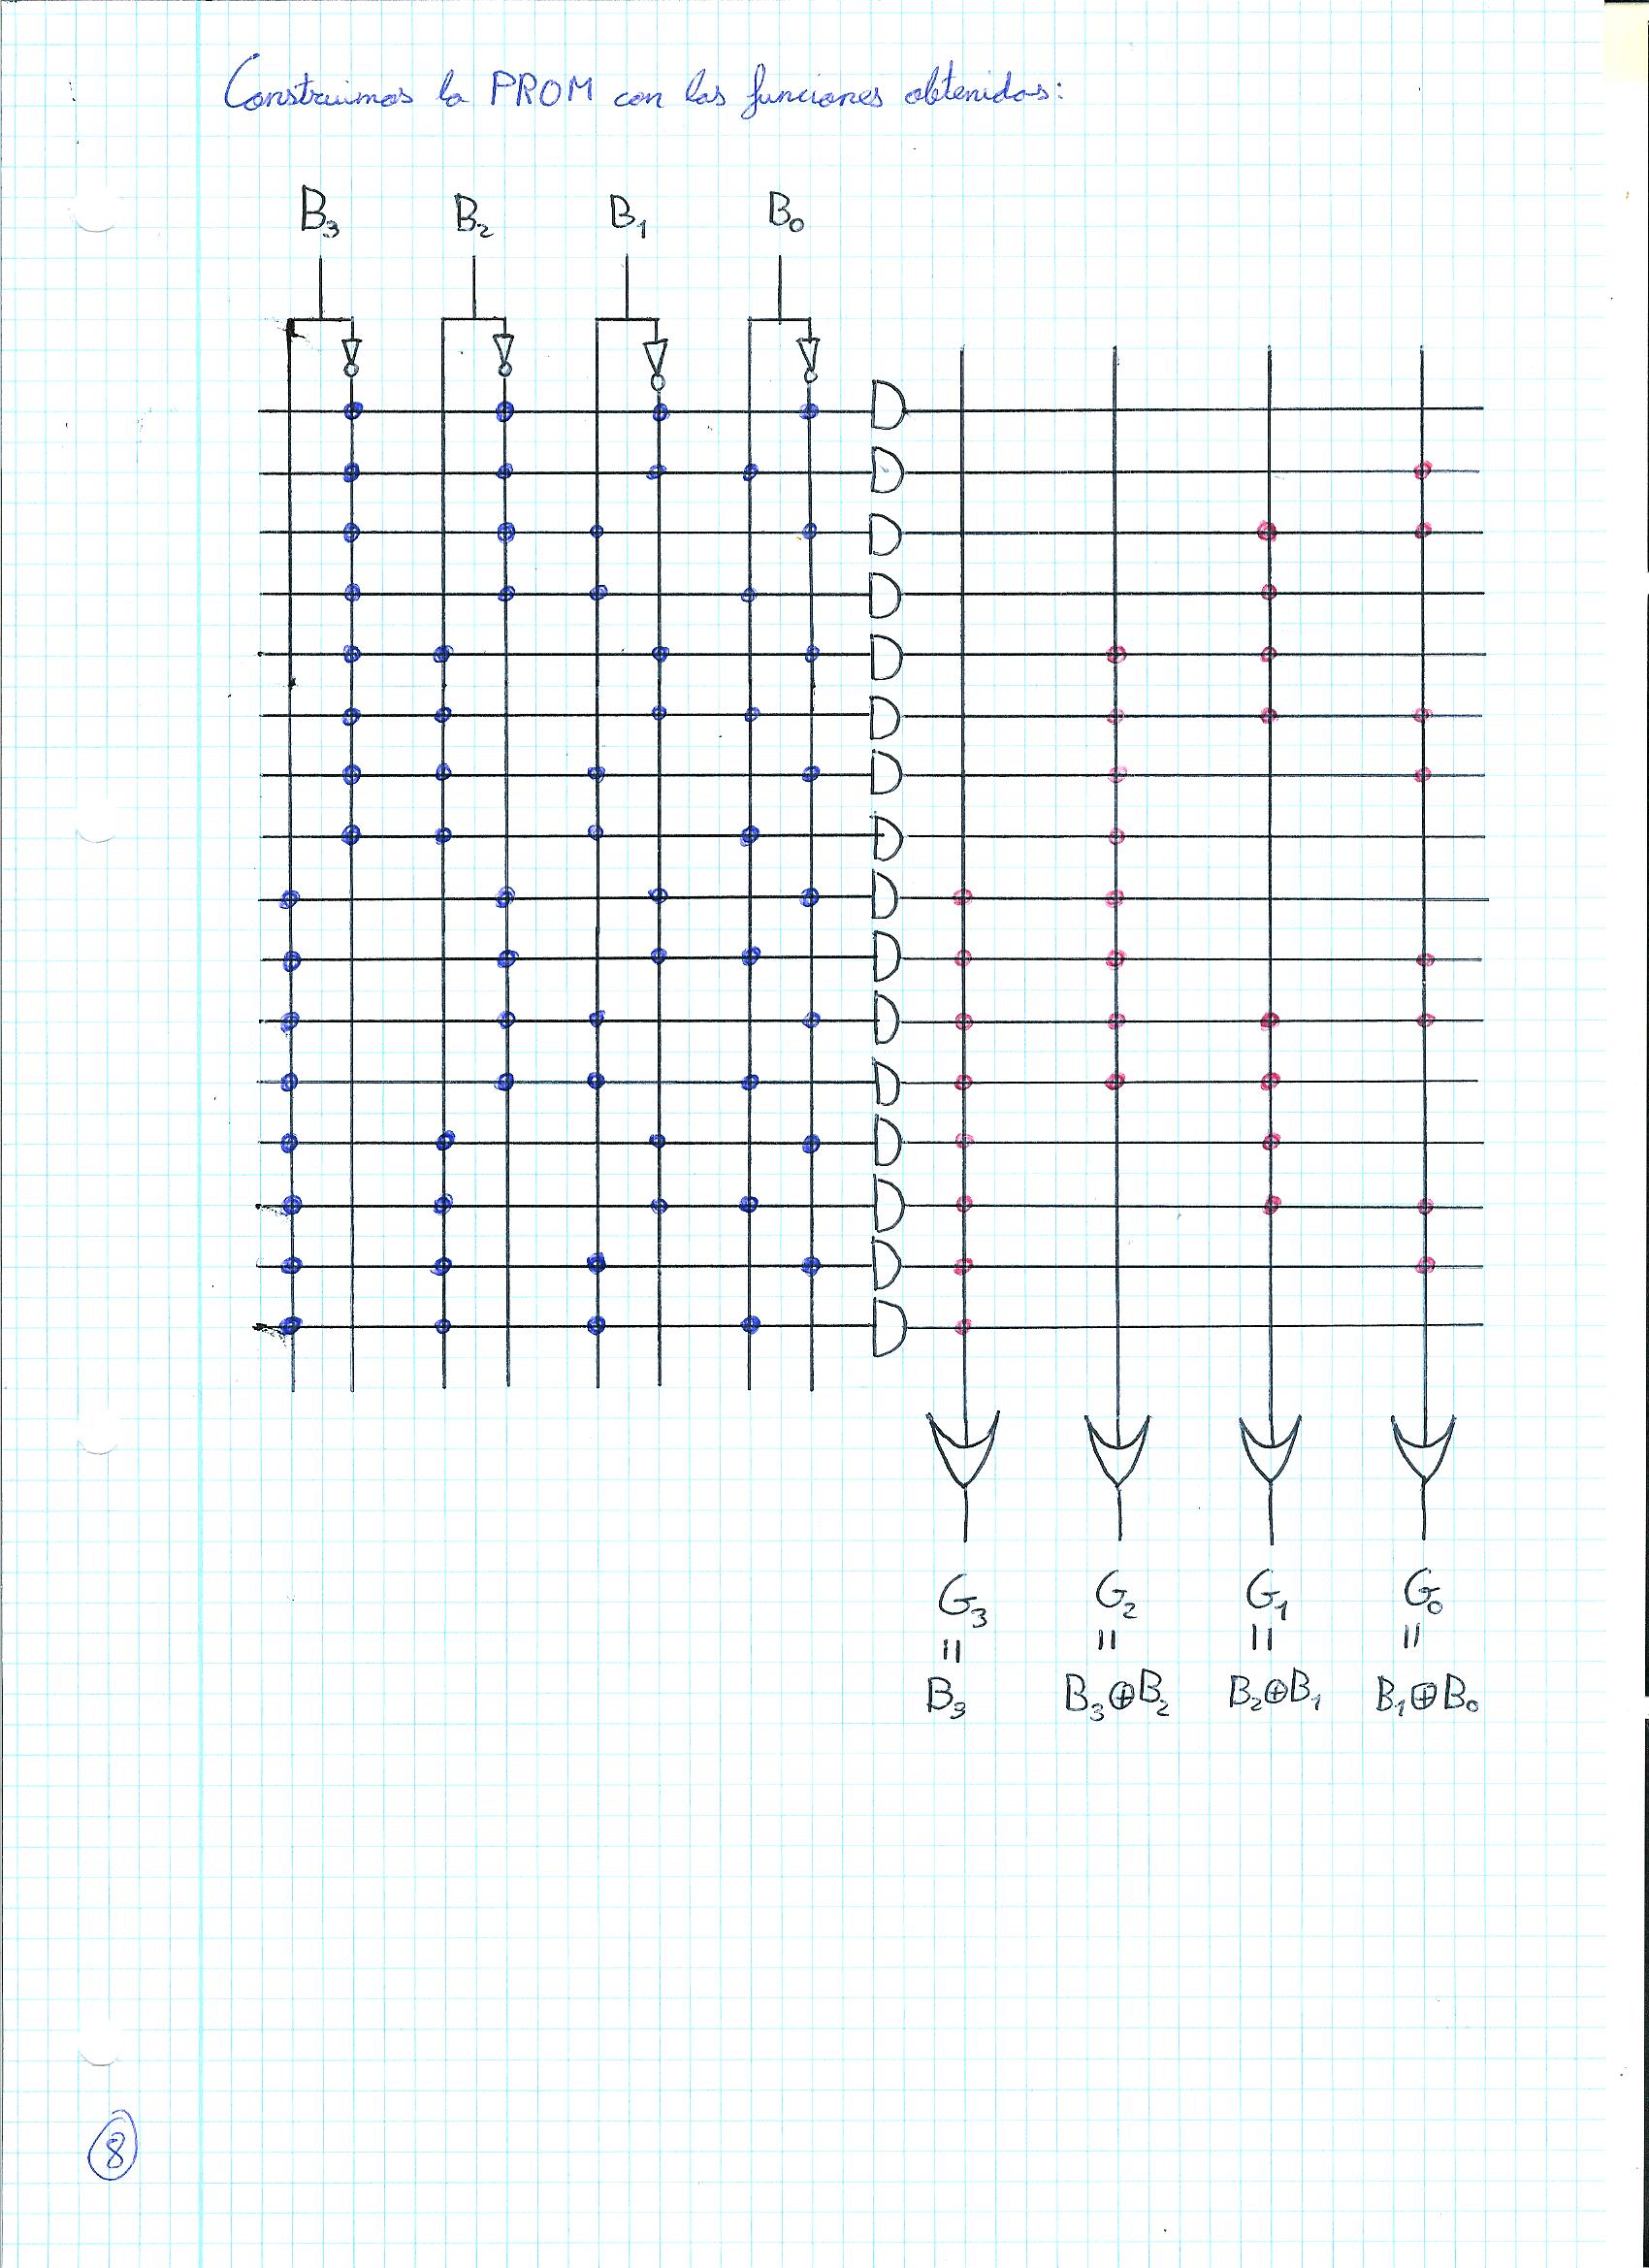 Construimos la PROM con las funciones obtenidas:
B₃ B₂ B₁ B₀
G₃ G₂ G₁ G₀
= = = =
B₃ B₃⊕B₂ B₂⊕B₁ B₁⊕B₀
8